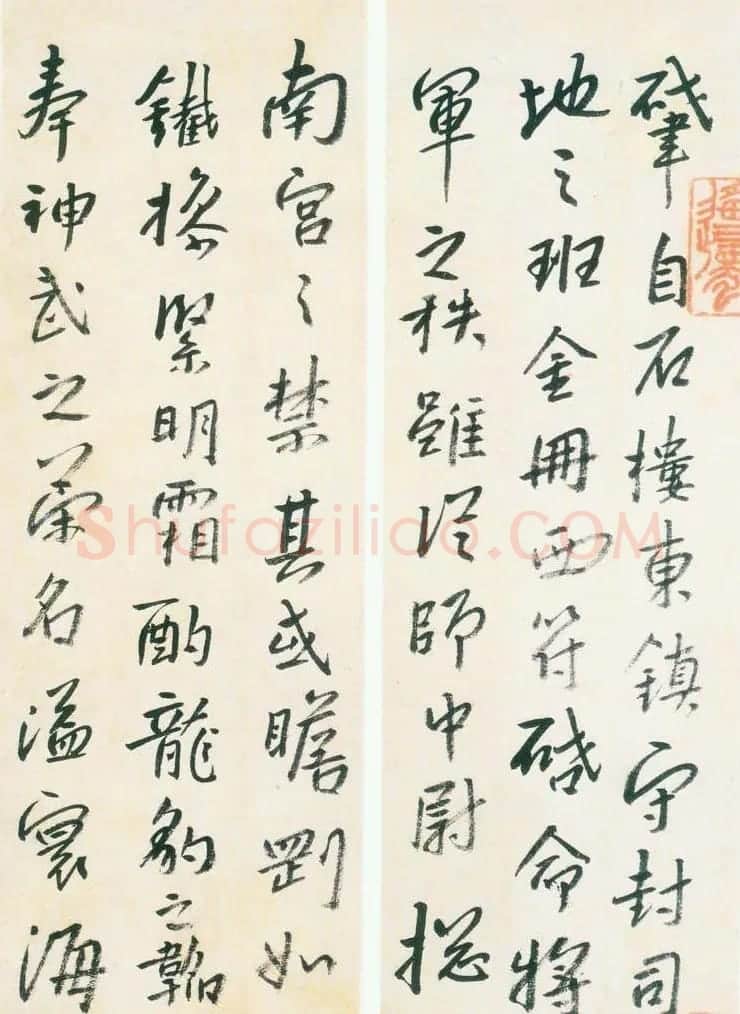 肇自石樓東鎮守封司
地之班金冊西符啓命將
軍之秩雖從師中尉總
南宮之禁其或瞻劉如
鐵操緊明霜酌龍豹之韜
奉神武之榮名溢寰海
Shufaziliao.COM